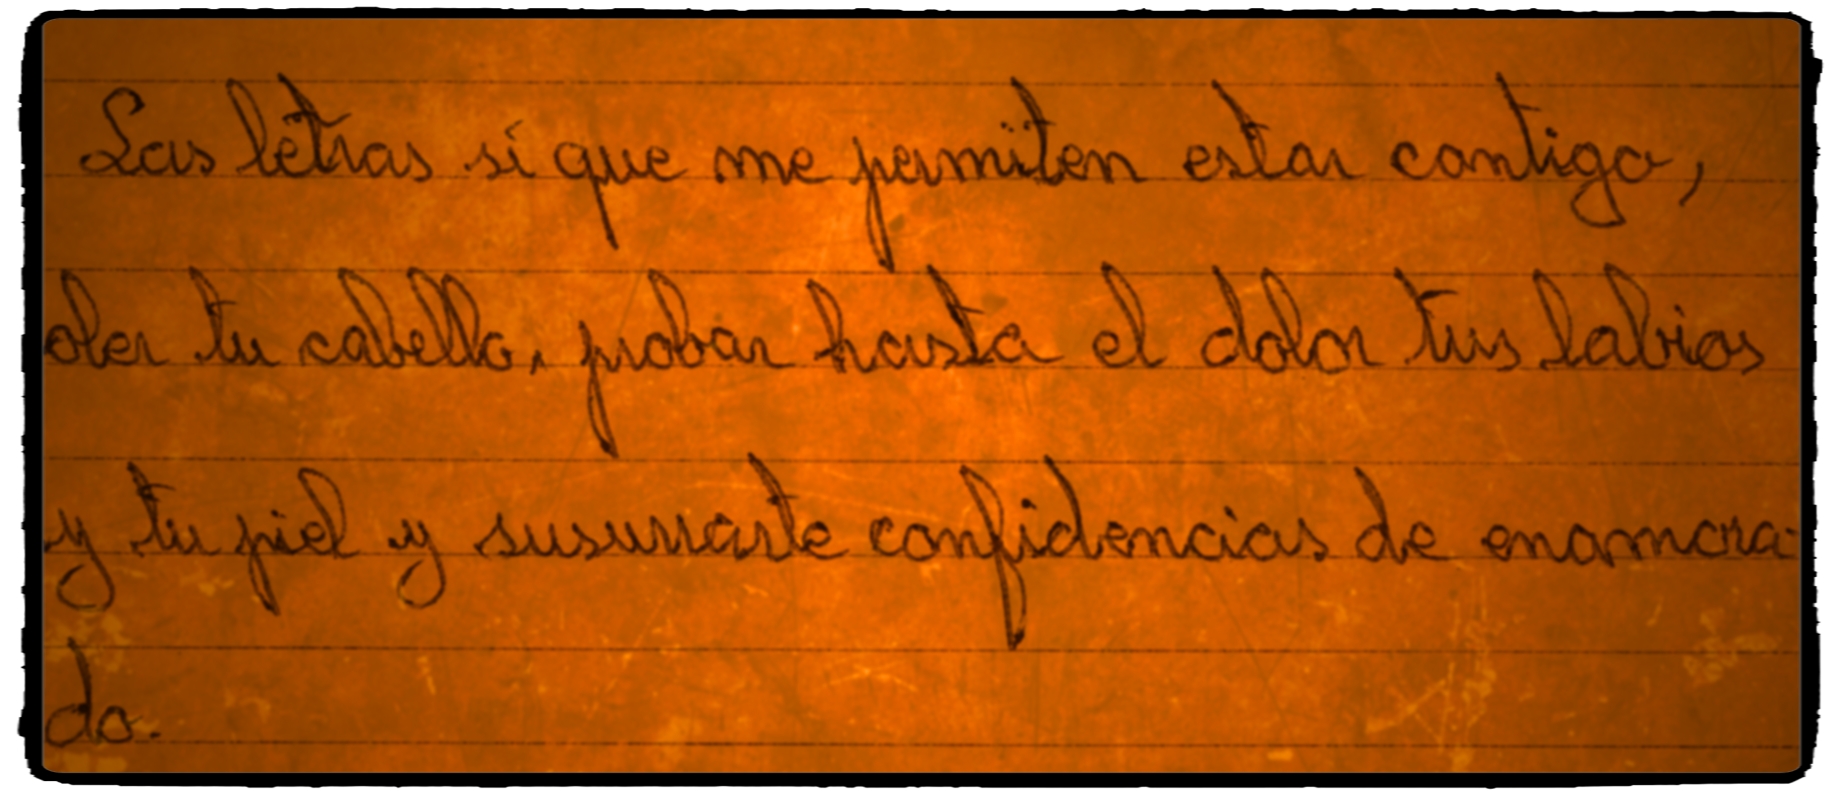 Las letras sí que me permiten estar contigo,
oler tu cabello, probar hasta el dolor tus labios
y tu piel y susurrarte confidencias de enamora-
do.